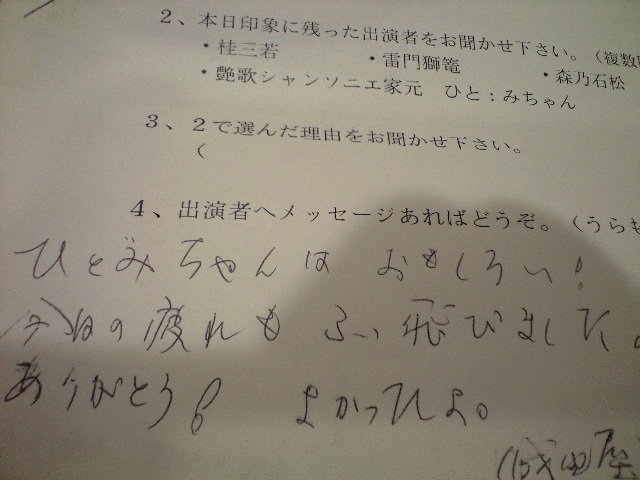 2、本日印象に残った出演者をお聞かせ下さい。（複数
・桂三若 ・雷門獅篭 ・森乃石松
・艶歌シャンソニエ家元 ひと：みちゃん
3、2で選んだ理由をお聞かせ下さい。
（
4、出演者へメッセージあればどうぞ。（うらも
ひとみちゃんは おもしろい！
今日の疲れも ふっ飛びました。
ありがとう！ よかったよ。
（成田屋